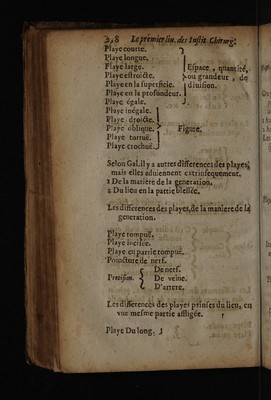 Le premier liu. des Instit. Chirurg.
Playe courte.
Playe longue.
Playe large.
Playe estroicte.
Playe en la superficie.
Playe en la profondeur.
Playe égale.
Espace, quantité,
ou grandeur, de
diuision.
Playe inégale.
Playe droicte.
Playe oblique.
Playe tortuë.
Playe crochuë.
Figure.
Selon Gal. il y a autres differences des playes,
mais elles aduiennent extrinsequement.
1 De la matiere de la generation.
2 Du lieu en la partie blessée.
Les differences des playes, de la maniere de la
generation.
Playe rompuë.
Playe incisée.
Playe en partie rompuë.
Poincture de nerf.
De nerf.
De veine.
D'artere.
Les differences des playes prinses du lieu, en
vne mesme partie affligée.
Playe Du long,